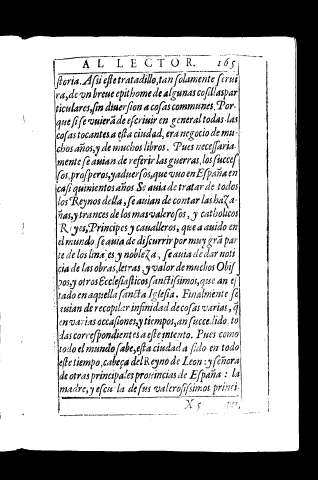 AL LECTOR. 165
storia. Assi este tratadillo, tan solamente serui
ra, de vn breue epithome de algunas cosillas par
ticulares, sin diuersion a cosas communes. Por-
que si se vuiera de escriuir en general todas las
cosas tocantes a esta ciudad, era negocio de mu-
chos años, y de muchos libros. Pues necessaria-
mente se auian de referir las guerras, los succes
sos, prosperos, y aduersos, que vuo en España en
casi quinientos años. Se auia de tratar de todos
los Reynos della, se auian de contar las haza-
ñas, y trances de los mas valerosos, y catholicos
Reyes, Principes y caualleros, que a auido en
el mundo se auia de discurrir por muy grã par
te de los linajes y nobleza, se auia de dar noti
cia de las obras, letras, y valor de muchos Obis
pos, y otros Ecclesiasticos sanctissimos, que an es
tado en aquella sancta Iglesia. Finalmente se
auian de recopilar infinidad de cosas varias, q̃
en varias occasiones, y tiempos, an succedido, to
das correspondientes a este intento. Pues como
todo el mundo sabe, esta ciudad a sido en todo
este tiempo, cabeça del Reyno de Leon: y señora
de otras principales prouincias de España: la
madre, y escuela de sus valerosissimos princi-
X 5 pes,